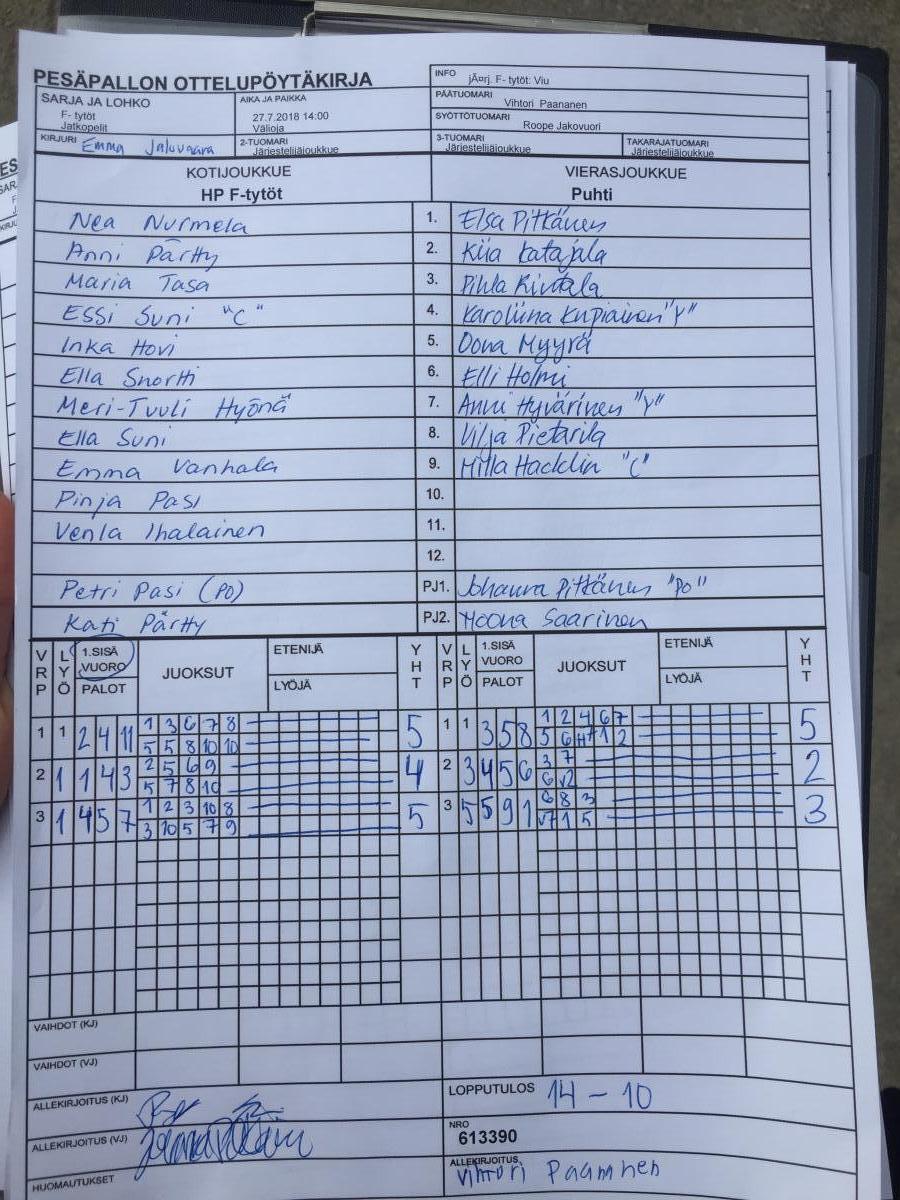 PESÄPALLON OTTELUPÖYTÄKIRJA
INFO jÃ¤rj. F- tytöt: Viu
SARJA JA LOHKO
F- tytöt
Jatkopelit
AIKA JA PAIKKA
27.7.2018 14:00
Välioja
PÄÄTUOMARI Vihtori Paananen
SYÖTTÖTUOMARI Roope Jakovuori
KIRJURI Emma
2-TUOMARI
Järjestelijäjoukkue
3-TUOMARI
Järjestelijäjoukkue
TAKARAJATUOMARI
Järjestelijäjoukkue
KOTIJOUKKUE VIERASJOUKKUE
HP F-tytöt Puhti
Nea Nurmela 1. Elsa Pitkänen
Anni Pärtty 2. Kiia Katajala
Maria Tasa 3. Pihla Rintala
Essi Suni "C" 4. Karoliina Kupiainen "Y"
Inka Hovi 5. Oona Myyrä
Ella Snortti 6. Elli Holmi
Meri-Tuuli Hyönä 7. Anni Hyvärinen "Y"
Ella Suni 8. Vilja Pietarila
Emma Vanhala 9. Milla Hacklin "C"
Pinja Pasi 10.
Venla Ihalainen 11.
12.
Petri Pasi (PO) PJ1. Johanna Pitkänen "PO"
Kati Pärtty PJ2. Noona Saarinen
VRP LYÖ 1.SISÄ VUORO PALOT JUOKSUT ETENIJÄ LYÖJÄ YHT VRP LYÖ 1.SISÄ VUORO PALOT JUOKSUT ETENIJÄ LYÖJÄ YHT
1 1 2 4 11 1 3 6 7 8 5 1 1 3 5 8 1 2 4 6 7 5
5 5 8 10 10 5 6 1 2
2 1 1 4 3 2 5 6 9 4 2 3 4 5 6 3 7 2
5 7 8 10 6 v2
3 1 4 5 7 1 2 3 10 8 5 3 5 5 9 1 6 8 3 3
3 10 5 7 9 v7 1 5
VAIHDOT (KJ)
VAIHDOT (VJ)
ALLEKIRJOITUS (KJ) LOPPUTULOS 14 - 10
ALLEKIRJOITUS (VJ) NRO
613390
HUOMAUTUKSET ALLEKIRJOITUS Vihtori Paananen